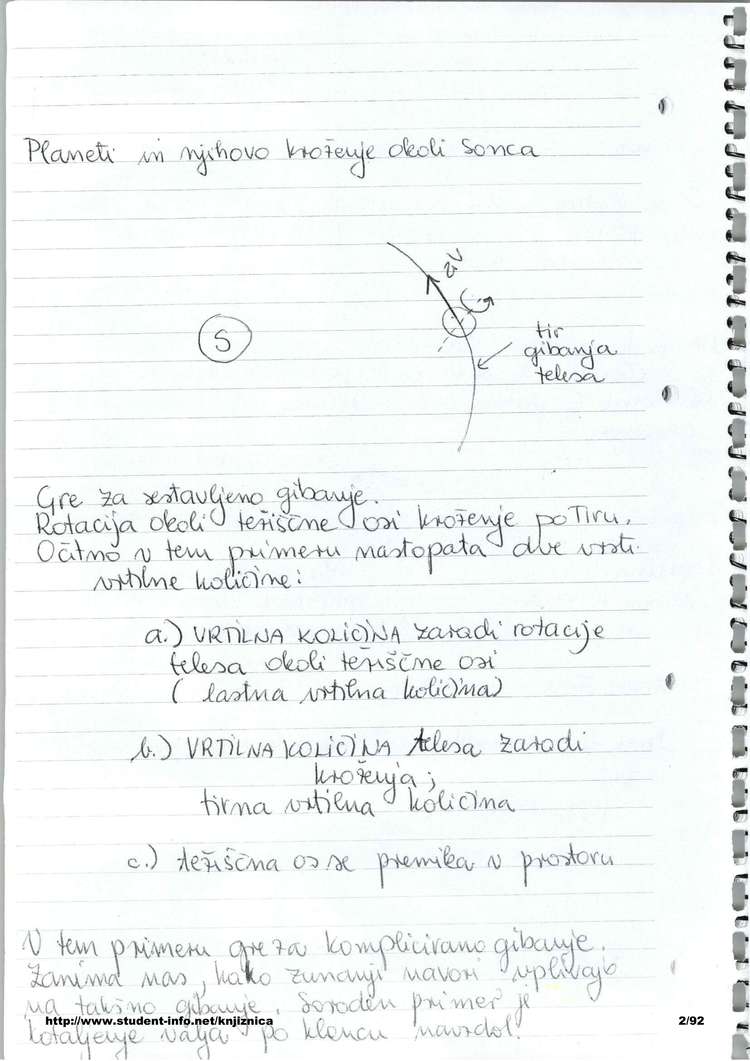 Planeti in njihovo kroženje okoli Sonca
v
S
tir
gibanja
telesa
Gre za sestavljeno gibanje.
Rotacija okoli težiščne osi kroženje po Tiru.
Očitno v tem primeru nastopata dve vrsti
vrtilne količine:
a.) VRTILNA KOLIČINA zaradi rotacije
telesa okoli težiščne osi
( lastna vrtilna količina)
b.) VRTILNA KOLIČINA telesa zaradi
kroženja;
tirna vrtilna količina
c.) težiščna os se premika v prostoru
V tem primeru gre za komplicirano gibanje.
Zanima nas, kako zunanji navori vplivajo
na takšno gibanje. Soroden primer je
kotaljenje valja po klancu navzdol.
http://www.student-info.net/knjiznica
2/92